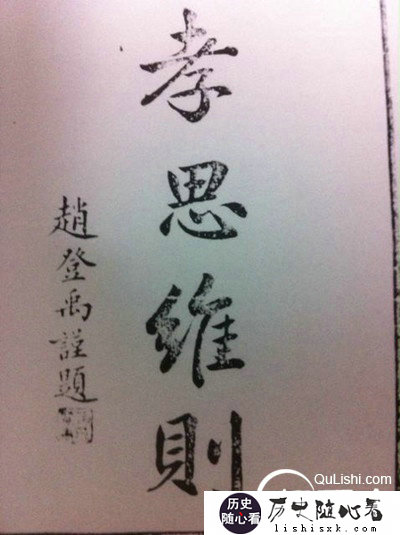 孝思維則
趙登禹謹題
QuLishi.com
历史
随心看
历史随心看
lishisxk.com